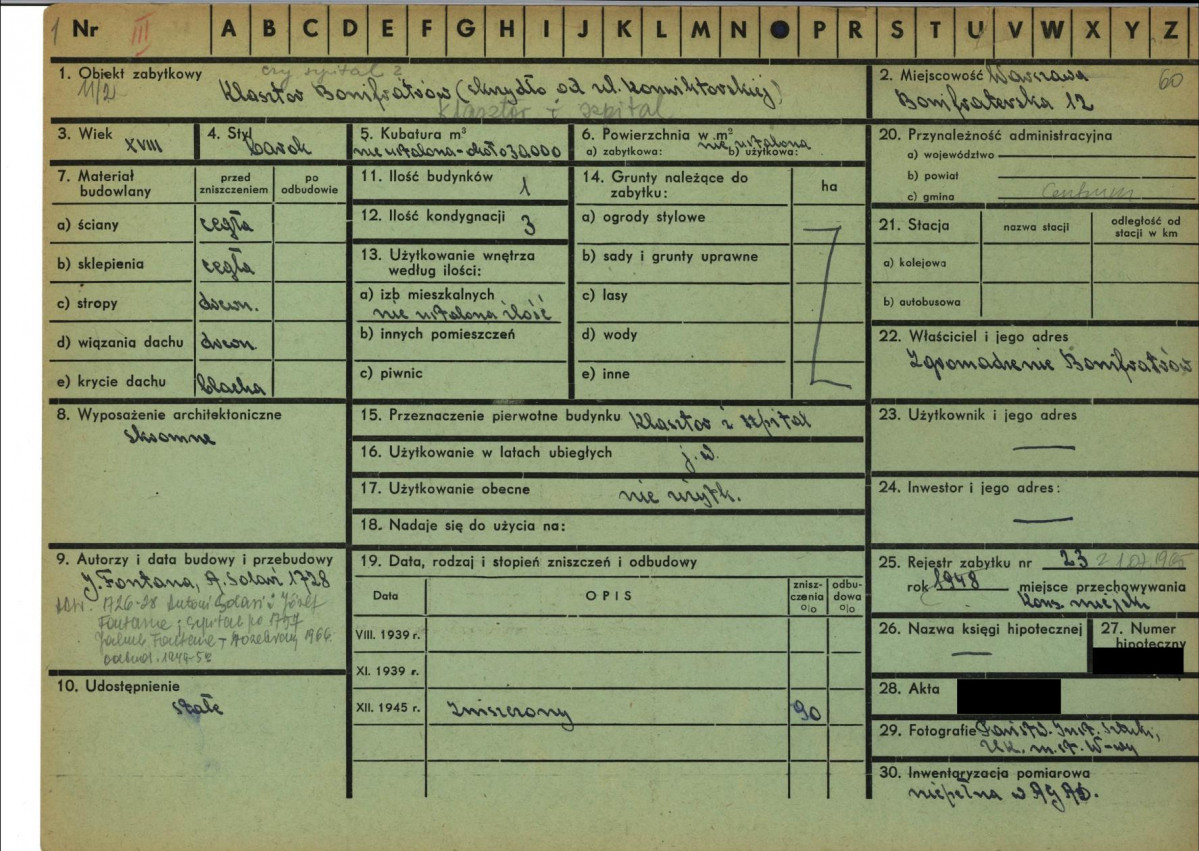 1 Nr III A B C D E F G H I J K L M N P R S T U V W X Y Z
1. Obiekt zabytkowy czy szpital ?
11/2 Klasztor Bonifratrów (skrzydło od ul. Konwiktorskiej)
Klasztor i szpital
2. Miejscowość Warszawa 60
Bonifraterska 12
3. Wiek XVIII
4. Styl barok
5. Kubatura m³
nie ustalona - około 30.000
6. Powierzchnia w m² nie ustalona
a) zabytkowa: b) użytkowa:
20. Przynależność administracyjna
a) województwo
b) powiat
c) gmina Centrum
7. Materiał budowlany
przed zniszczeniem
po odbudowie
a) ściany cegła
b) sklepienia cegła
c) stropy drewn.
d) wiązania dachu drewn.
e) krycie dachu blacha
11. Ilość budynków 1
12. Ilość kondygnacji 3
13. Użytkowanie wnętrza
według ilości:
a) izb mieszkalnych
nie ustalona ilość
b) innych pomieszczeń
c) piwnic
14. Grunty należące do
zabytku:
ha
a) ogrody stylowe
b) sady i grunty uprawne
c) lasy
d) wody
e) inne
21. Stacja
nazwa stacji
odległość od
stacji w km
a) kolejowa
b) autobusowa
22. Właściciel i jego adres
Zgromadzenie Bonifratrów
8. Wyposażenie architektoniczne
skromne
15. Przeznaczenie pierwotne budynku klasztor i szpital
16. Użytkowanie w latach ubiegłych j.w.
17. Użytkowanie obecne nie użytk.
18. Nadaje się do użycia na:
23. Użytkownik i jego adres
24. Inwestor i jego adres:
9. Autorzy i data budowy i przebudowy
J. Fontana, A. Solari 1728
1726-28 Antoni Solari i Józef
Fontana; szpital po 1757
Jakub Fontana
odbud. 1949-5
10. Udostępnienie
stałe
19. Data, rodzaj i stopień zniszczeń i odbudowy
Data
OPIS
znisz-
czenia
o|o
odbu-
dowa
o|o
VIII. 1939 r.
XI. 1939 r.
XII. 1945 r. Zniszczony 90
25. Rejestr zabytku nr 23 z 1.07.1965
rok 1948 miejsce przechowywania
Kons. miejski
26. Nazwa księgi hipotecznej
27. Numer
hipoteczny
28. Akta
29. Fotografie Państw. Inst. Sztuki,
U.K. m.st. W-wy
30. Inwentaryzacja pomiarowa
niepełna w AGAD.